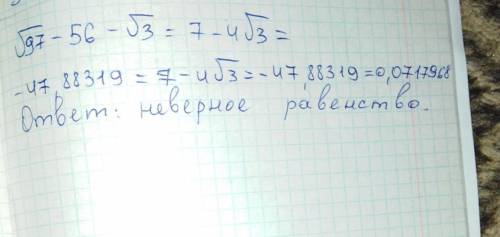 √97 - 56 - √3 = 7 - 4√3 =
-47,88319 = 7 - 4√3 = -47,88319 = 0,0717968
Ответ: неверное равенство.